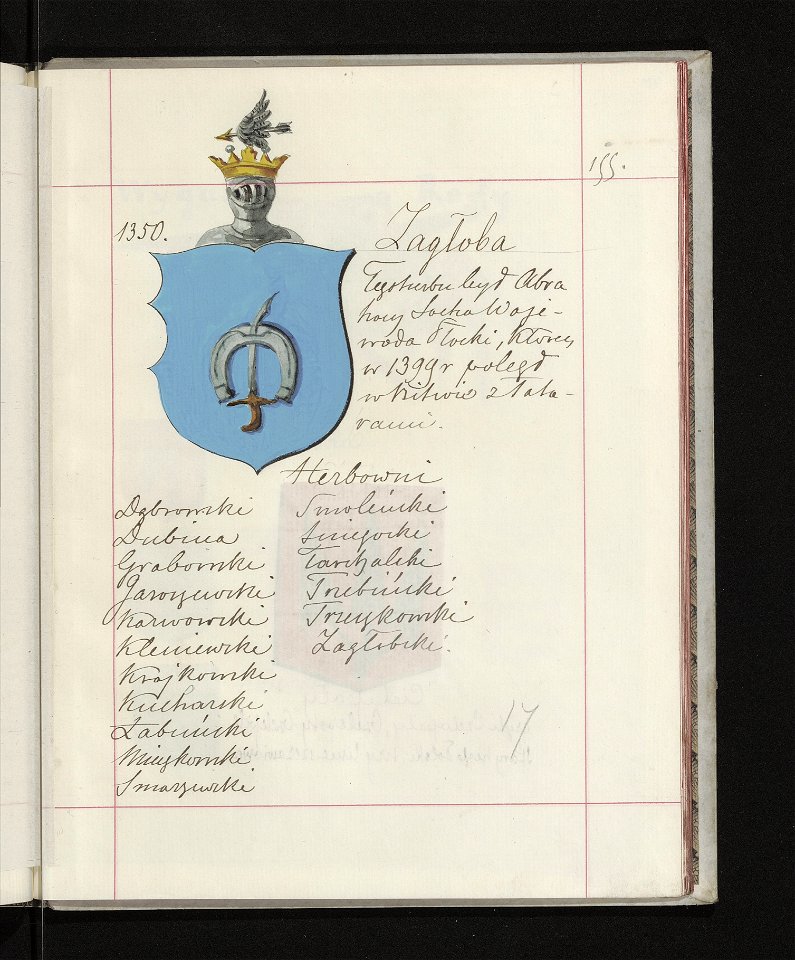 155.
1350.
Zagłoba
Tego herbu był Abra
ham Socha Woje-
woda Płocki, który
w 1399 r poległ
w bitwie z Tata-
rami.
Herbowni
Dąbrowski
Dubina
Grabowski
Jaroszewski
Karwowski
Kleniewski
Krajkowski
Kucharski
Łabuński
Miszkowski
Smarzewski
Smoleński
Śniegocki
Tarchalski
Trzebiński
Trzcykowski
Zagłobski.
17